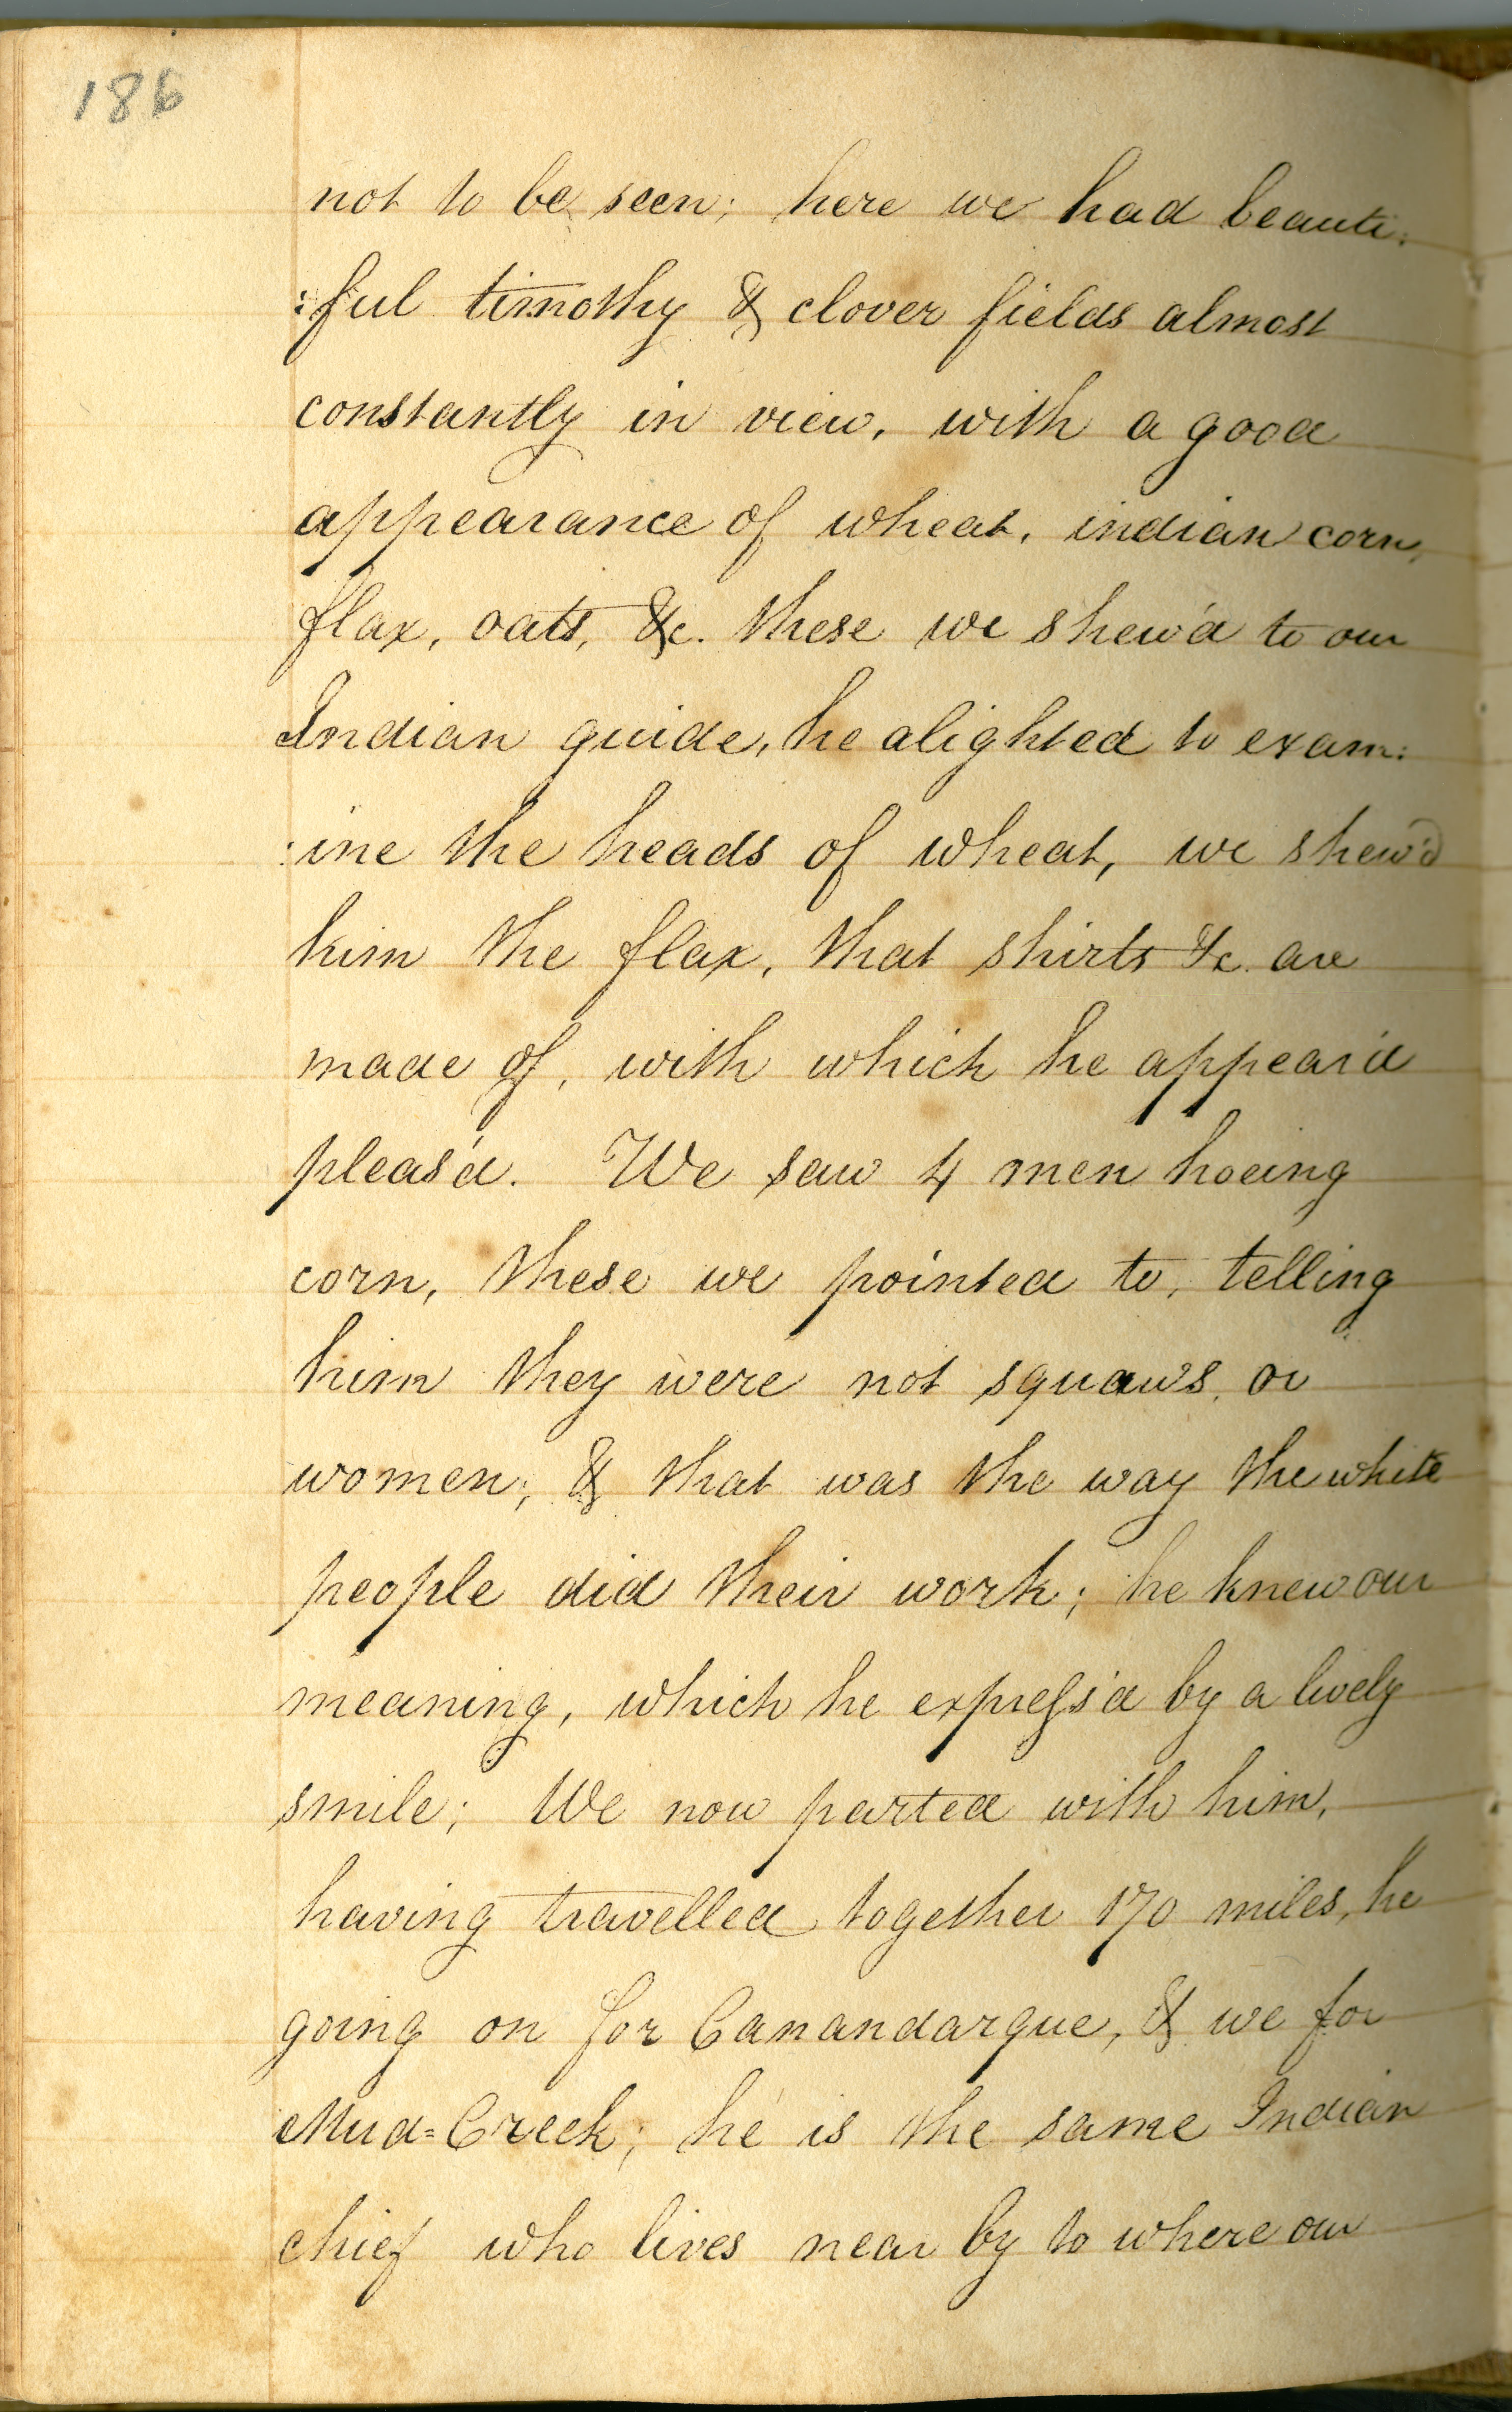 186
not to be seen; here we had beauti:
:ful timothy & clover fields almost
constantly in view, with a good
appearance of wheat, indian corn,
flax, oats, &c. these we shew'd to our
Indian guide, he alighted to exam:
:ine the heads of wheat, we shew'd
him the flax, that shirts &c. are
made of, with which he appear'd
pleas'd. We saw 4 men hoeing
corn, these we pointed to, telling
him they were not squaws, or
women; & that was the way the white
people did their work; he knew our
meaning, which he expreſs'd by a lively
smile; We now parted with him,
having travelled together 170 miles, he
going on for Canandarque, & we for
Mud=Creek; he is the same Indian
chief who lives near by to where our